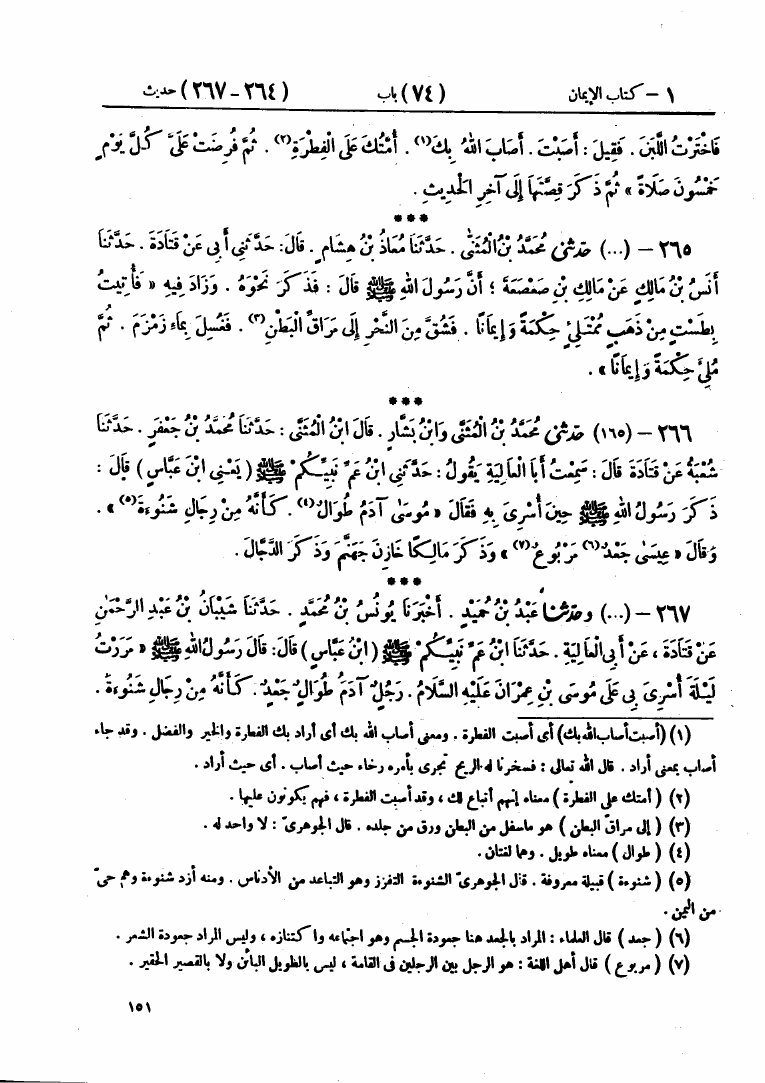 ١ – كتاب الإيمان (٧٤) باب (٢٦٤ – ٢٦٧) حديث
فَاخْتَرْتُ اللَّبَنَ . فَقِيلَ : أَصَبْتَ . أَصَابَ اللهُ بِكَ(١) . أُمَّتُكَ عَلَى الْفِطْرَةِ(٢) . ثُمَّ فُرِضَتْ عَلَىَّ كُلَّ يَوْمٍ
خَمْسُونَ صَلَاةً » ثُمَّ ذَكَرَ قِصَّتَهَا إِلَى آخِرِ الْحَدِيثِ .
***
٢٦٥ – (...) حَدَّثَنِى مُحَمَّدُ بْنُ الْمُثَنَّى . حَدَّثَنَا مُعَاذُ بْنُ هِشَامٍ . قَالَ: حَدَّثَنِى أَبِى عَنْ قَتَادَةَ . حَدَّثَنَا
أَنَسُ بْنُ مَالِكٍ عَنْ مَالِكِ بْنِ صَعْصَعَةَ ؛ أَنَّ رَسُولَ اللهِ ﷺ قَالَ : فَذَكَرَ نَحْوَهُ . وَزَادَ فِيهِ « فَأُتِيتُ
بِطَسْتٍ مِنْ ذَهَبٍ مُمْتَلِئٍ حِكْمَةً وَإِيمَانًا . فَشُقَّ مِنَ النَّحْرِ إِلَى مَرَاقِّ الْبَطْنِ(٣) . فَغُسِلَ بِمَاءِ زَمْزَمَ . ثُمَّ
مُلِئَ حِكْمَةً وَإِيمَانًا » .
***
٢٦٦ – (١٦٥) حَدَّثَنِى مُحَمَّدُ بْنُ الْمُثَنَّى وَابْنُ بَشَّارٍ . قَالَ ابْنُ الْمُثَنَّى : حَدَّثَنَا مُحَمَّدُ بْنُ جَعْفَرٍ . حَدَّثَنَا
شُعْبَةُ عَنْ قَتَادَةَ قَالَ : سَمِعْتُ أَبَا الْعَالِيَةِ يَقُولُ : حَدَّثَنِى ابْنُ عَمِّ نَبِيِّكُمْ ﷺ (يَعْنِى ابْنَ عَبَّاسٍ) قَالَ :
ذَكَرَ رَسُولُ اللهِ ﷺ حِينَ أُسْرِىَ بِهِ فَقَالَ « مُوسَىٰ آدَمُ طُوَالٌ(٤) . كَأَنَّهُ مِنْ رِجَالِ شَنُوءَةَ(٥) » .
وَقَالَ « عِيسَىٰ جَعْدٌ(٦) مَرْبُوعٌ(٧) » وَذَكَرَ مَالِكًا خَازِنَ جَهَنَّمَ وَذَكَرَ الدَّجَّالَ .
***
٢٦٧ – (...) وحَدَّثَنَا عَبْدُ بْنُ حُمَيْدٍ . أَخْبَرَنَا يُونُسُ بْنُ مُحَمَّدٍ . حَدَّثَنَا شَيْبَانُ بْنُ عَبْدِ الرَّحْمَٰنِ
عَنْ قَتَادَةَ ، عَنْ أَبِى الْعَالِيَةِ . حَدَّثَنَا ابْنُ عَمِّ نَبِيِّكُمْ ﷺ (ابْنُ عَبَّاسٍ) قَالَ: قَالَ رَسُولُ اللهِ ﷺ « مَرَرْتُ
لَيْلَةَ أُسْرِىَ بِى عَلَى مُوسَى بْنِ عِمْرَانَ عَلَيْهِ السَّلَامُ . رَجُلٌ آدَمُ طُوَالٌ جَعْدٌ . كَأَنَّهُ مِنْ رِجَالِ شَنُوءَةَ .
(١) (أصبت أصاب الله بك) أى أصبت الفطرة . ومعنى أصاب الله بك أى أراد بك الفطرة والخير والفضل . وقد جاء
أصاب بمعنى أراد . قال الله تعالى : فسخرنا له الريح تجرى بأمره رخاء حيث أصاب . أى حيث أراد .
(٢) (أمتك على الفطرة) معناه إنهم أتباع لك ، وقد أصبت الفطرة ، فهم يكونون عليها .
(٣) (إلى مراقّ البطن) هو ماسفل من البطن ورق من جلده . قال الجوهرىّ : لا واحد له .
(٤) (طوال) معناه طويل . وهما لغتان .
(٥) (شنوءة) قبيلة معروفة . قال الجوهرىّ الشنوءة التقزز وهو التباعد من الأدناس . ومنه أزد شنوءة وهم حىّ
من اليمن .
(٦) (جعد) قال العلماء : المراد بالجعد هنا جعودة الجسم وهو اجتماعه واكتنازه ، وليس المراد جعودة الشعر .
(٧) (مربوع) قال أهل اللغة : هو الرجل بين الرجلين فى القامة ، ليس بالطويل البائن ولا بالقصير الحقير .
١٥١